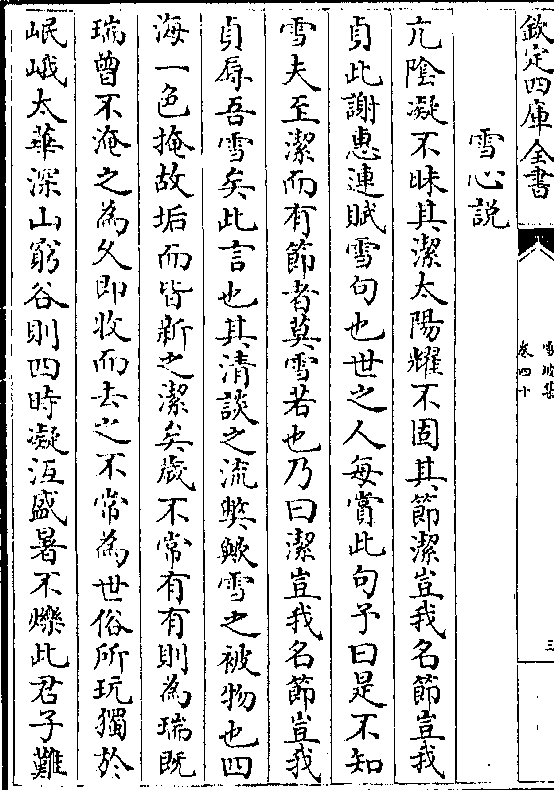 欽定四庫全書
卷四十
三
雪心説
亢陰凝不昧其潔太陽耀不固其節潔豈我名節豈我
貞此謝惠連賦雪句也世之人每賞此句予曰是不知
雪夫至潔而有節者莫雪若也乃曰潔豈我名節豈我
貞辱吾雪矣此言也其清談之流弊歟雪之被物也四
海一色掩故垢而皆新之潔矣歲不常有有則為瑞既
瑞曽不淹之為久即收而去之不常為世俗所玩獨於
岷峨太華深山窮谷則四時凝沍盛暑不爍此君子難